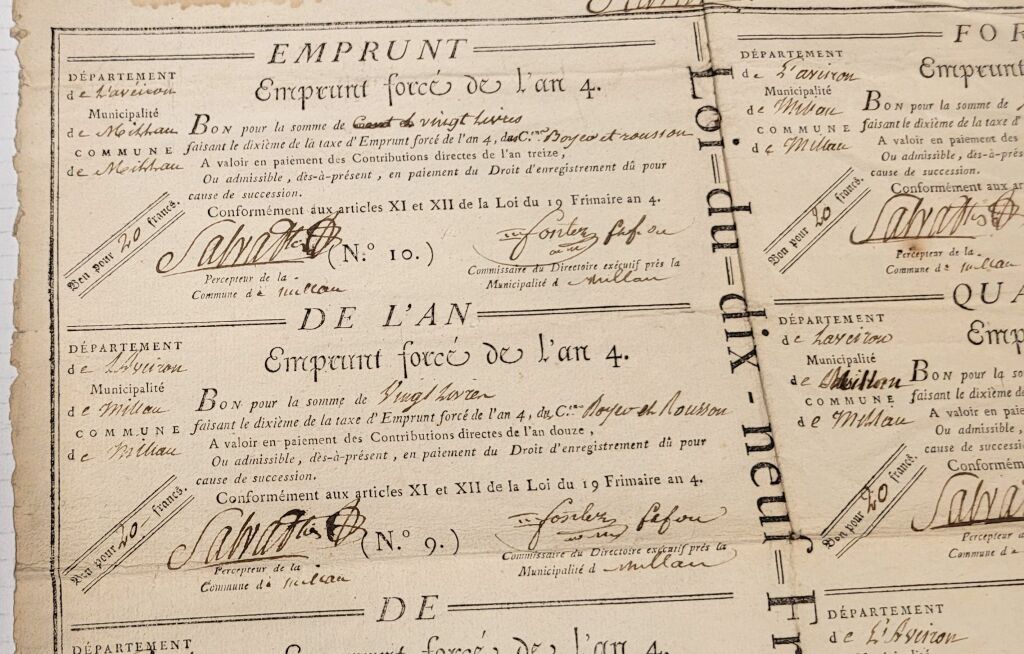 EMPRUNT
DÉPARTEMENT
de L'aveiron
Municipalité
de Milhau
COMMUNE
de Milhau
Emprunt forcé de l'an 4.
BON pour la somme de vingt livres
faisant le dixième de la taxe d'Emprunt forcé de l'an 4, Boyer et rousson
A valoir en paiement des Contributions directes de l'an treize,
Ou admissible, dès-à-présent, en paiement du Droit d'enregistrement dû pour
cause de succession.
Conformément aux articles XI et XII de la Loi du 19 Frimaire an 4.
Bon pour 20 francs.
(N.º 10.)
Percepteur de la
Commune de millau
Commissaire du Directoire exécutif près la
Municipalité d millau
DE L'AN
DÉPARTEMENT
de L'Aveiron
Municipalité
de Millau
COMMUNE
de Millau
Emprunt forcé de l'an 4.
BON pour la somme de Vingt livres
faisant le dixième de la taxe d'Emprunt forcé de l'an 4, du C.en Boyer et Rousson
A valoir en paiement des Contributions directes de l'an douze,
Ou admissible, dès-à-présent, en paiement du Droit d'enregistrement dû pour
cause de succession.
Conformément aux articles XI et XII de la Loi du 19 Frimaire an 4.
Bon pour 20 francs.
(N.º 9.)
Percepteur de la
Commune de millau
Commissaire du Directoire exécutif près la
Municipalité d millau
DE
DÉPARTEMENT
Emprunt forcé de l'an 4.
Loi=du=dix-neuf=Fr
FOR
DÉPARTEMENT
de L'aveiron
Municipalité
de Millau
COMMUNE
de Millau
Emprunt
BON pour la somme de
faisant le dixième de la taxe d'
A valoir en paiement des
Ou admissible, dès-à-présent,
cause de succession.
Conformément aux ar
Bon pour 20 francs.
Percepteur de la
Commune de millau
QUA
DÉPARTEMENT
de Laveiron
Municipalité
de Millau
COMMUNE
de Millau
Emp
BON pour la so
faisant le dixième de la
A valoir en paiement
Ou admissible,
cause de succession
Conformém
Bon pour 20 francs.
Percepteur d
Commune d
DÉPARTEMENT
de L'Aveiron
Municipalité